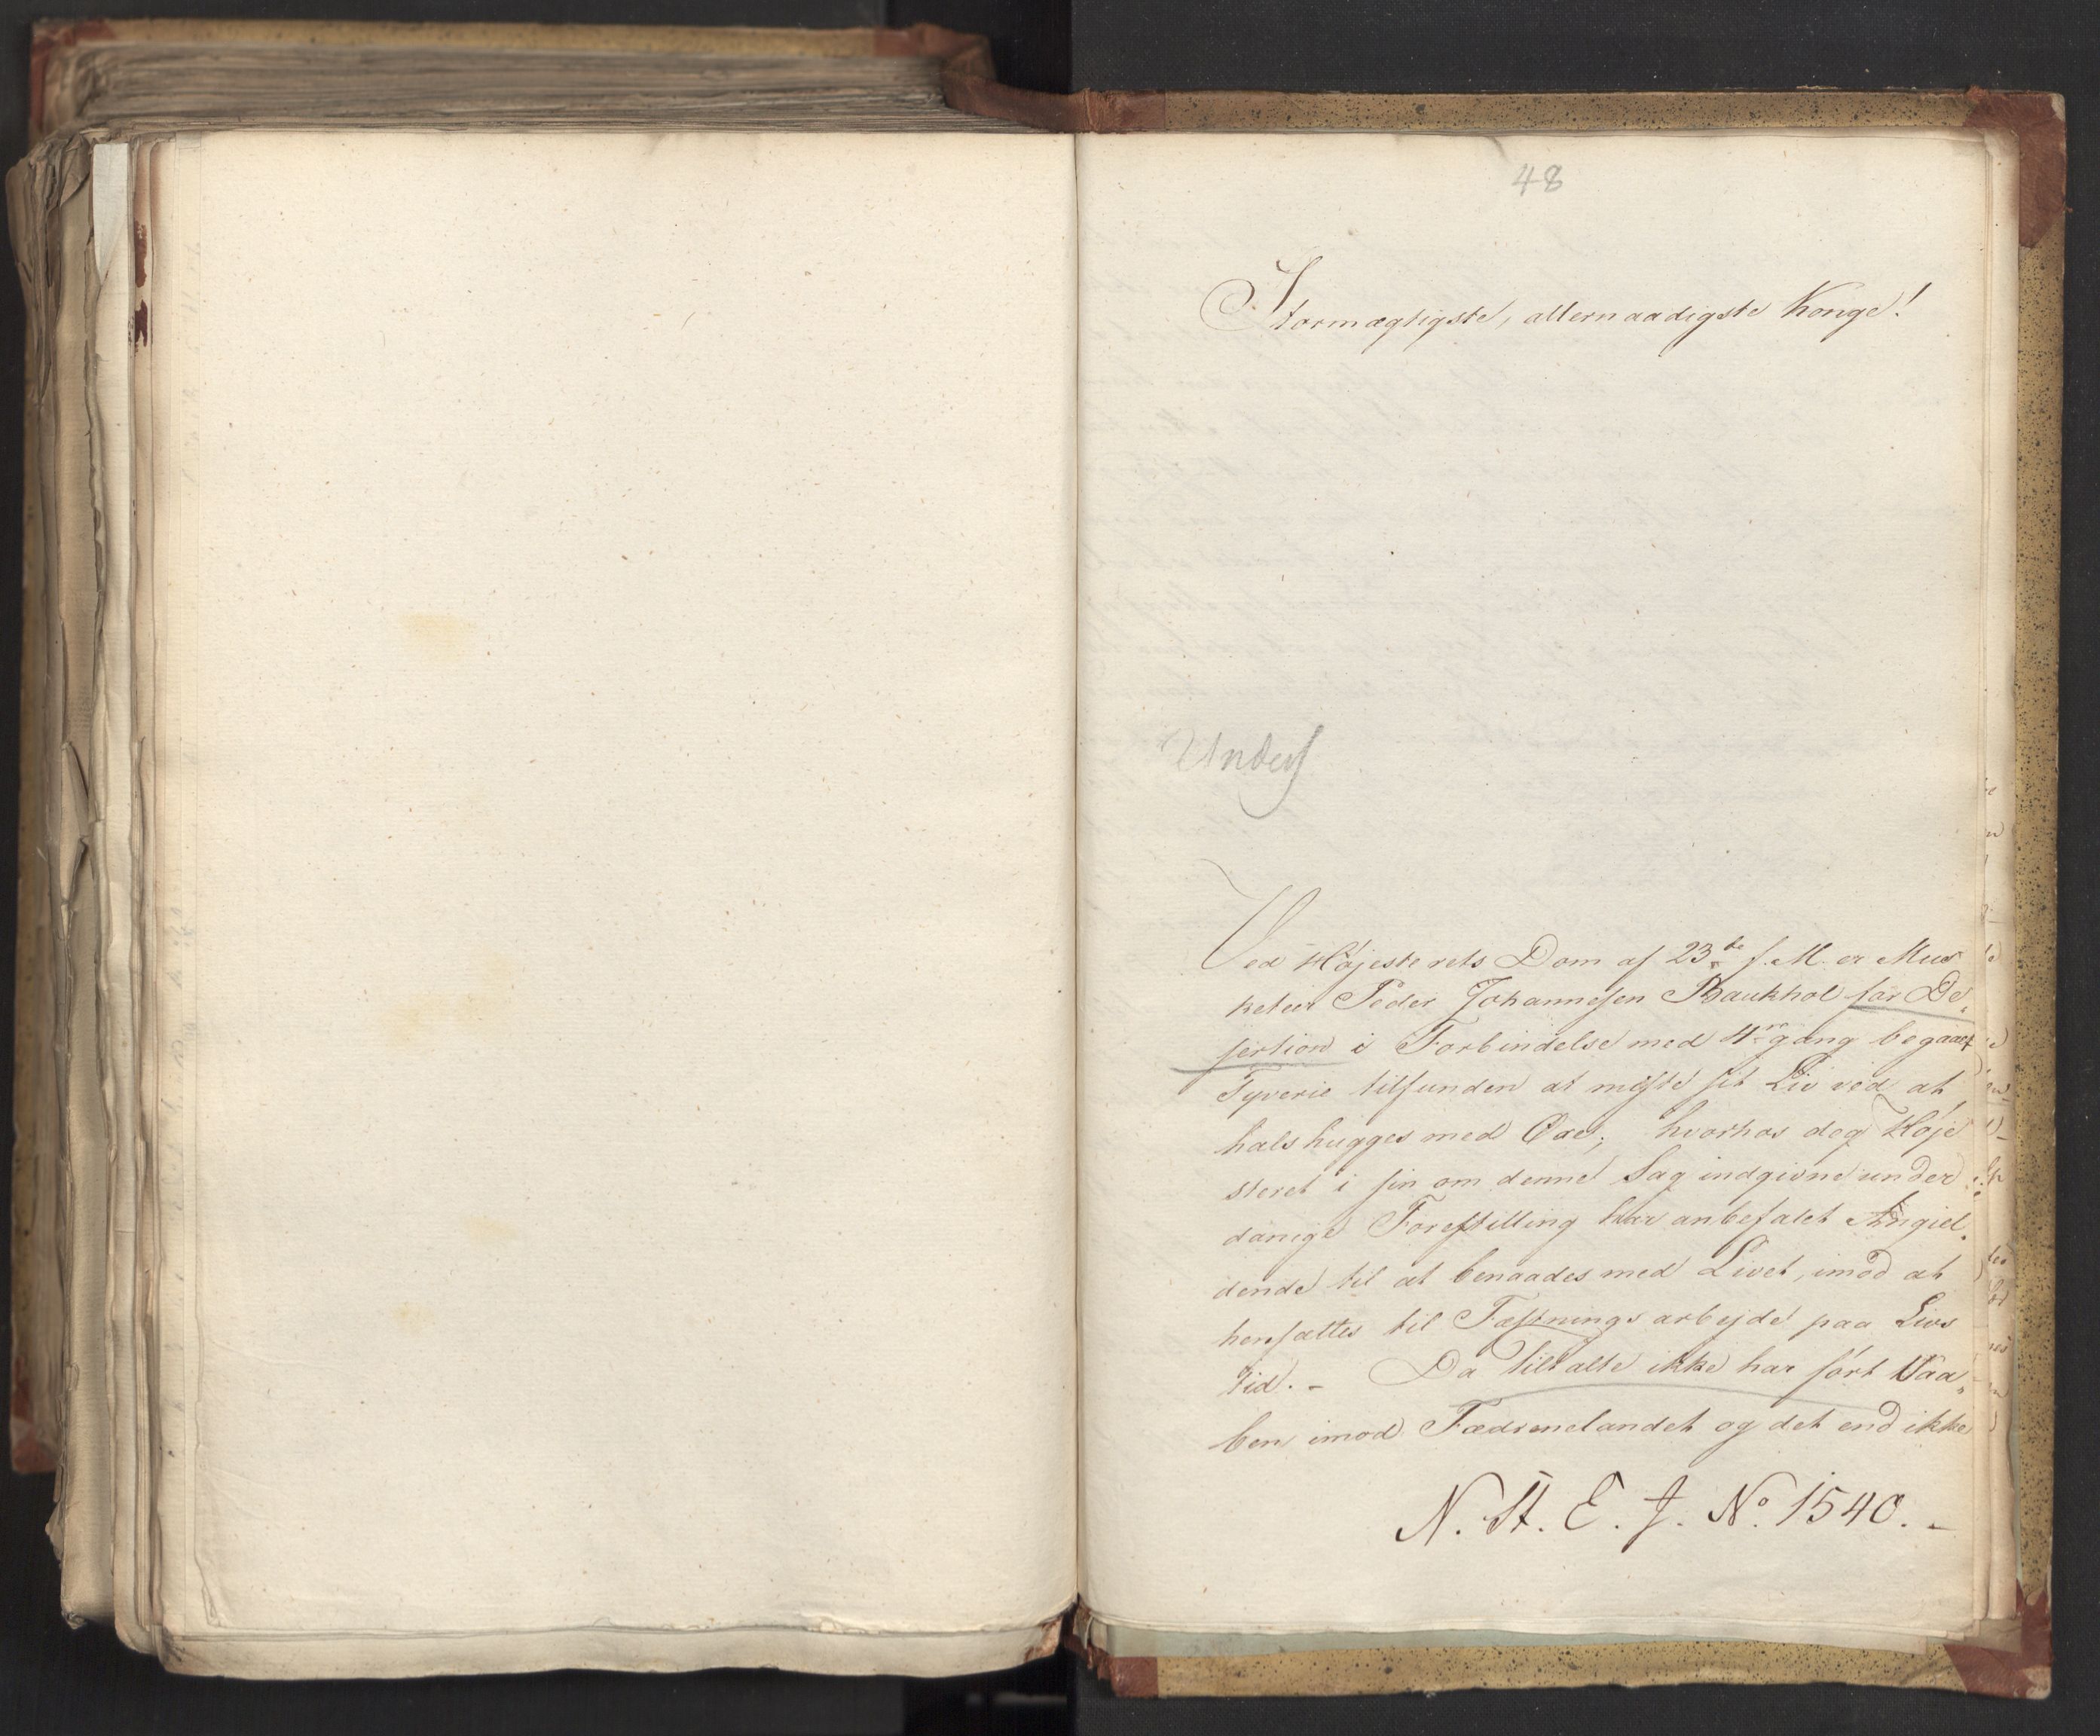 48
Stormægtigste, allernaadigste Konge!
Ved Høiesterets Dom af 23de f. M. er Mus
keteer Peder Johannesen Baukhol for De„
sertion i Forbindelse med 4re gang begaaet
Tyverie tilfunden at miste sit Liv ved at
halshugges med Øxe; hvorhos dog Høje
steret i sin om denne Sag indgivne under
danige Forestilling har anbefalet Angiel„
dende til at benaades med Livet, imod at
hensættes til Fæstningsarbejde paa Livs
tid. - Da tiltalte ikke har ført Vaa„
ben imod Fædrenelandet og det end ikke
N. St. E. J. No. 1540. -